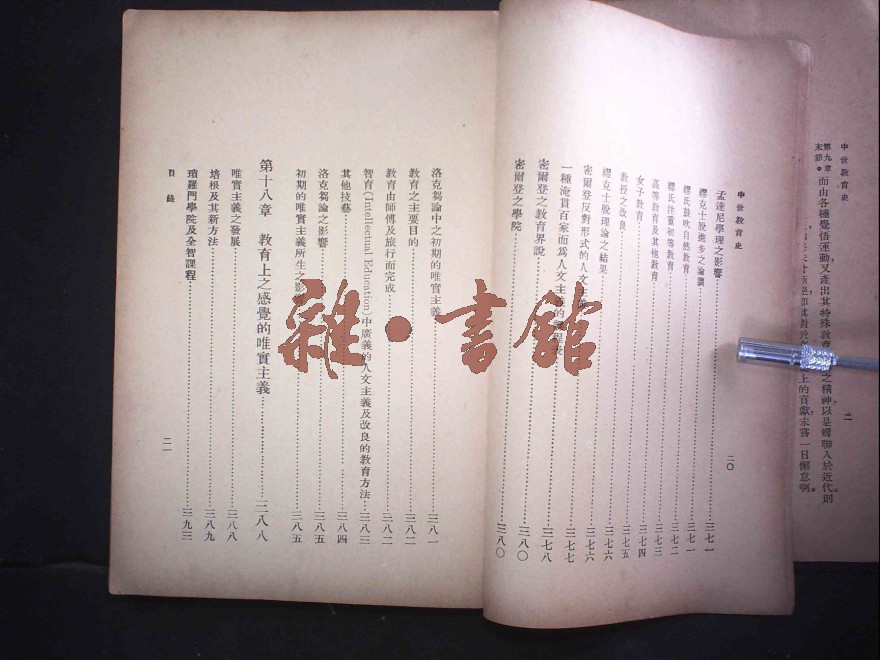 中世教育史
第九章
末節。
而由各種覺悟運動又產出其特殊教
之精神以是蟬聯入於近代則
上的貢獻未嘗一日懈怠啊。
二
中世教育史
二〇
孟達尼學理之影響……三七一
繆克士脫進步之論調……三七一
繆氏鼓吹自然教育……三七二
繆氏注重初等教育……三七二
高等教育及其他教育……三七三
女子教育……三七四
教授之改良……三七五
繆克士脫理論之結果……三七六
密爾登反對形式的人文主義……三七六
一種淹貫百家而爲人文主義的
密爾登之教育界說……三七八
密爾登之學院……三八〇
洛克芻論中之初期的唯實主義……三八一
教育之主要目的……三八二
教育由師傅及旅行而完成……三八二
智育(Intellectual Education)中廣義的人文主義及改良的教育方法……三八三
其他技藝……三八四
洛克芻論之影響……三八五
初期的唯實主義所生之影響……三八五
第十八章 教育上之感覺的唯實主義……三八八
唯實主義之發展……三八八
培根及其新方法……三八九
瑣羅門學院及全智課程……三九三
目錄
二一
雜·書館